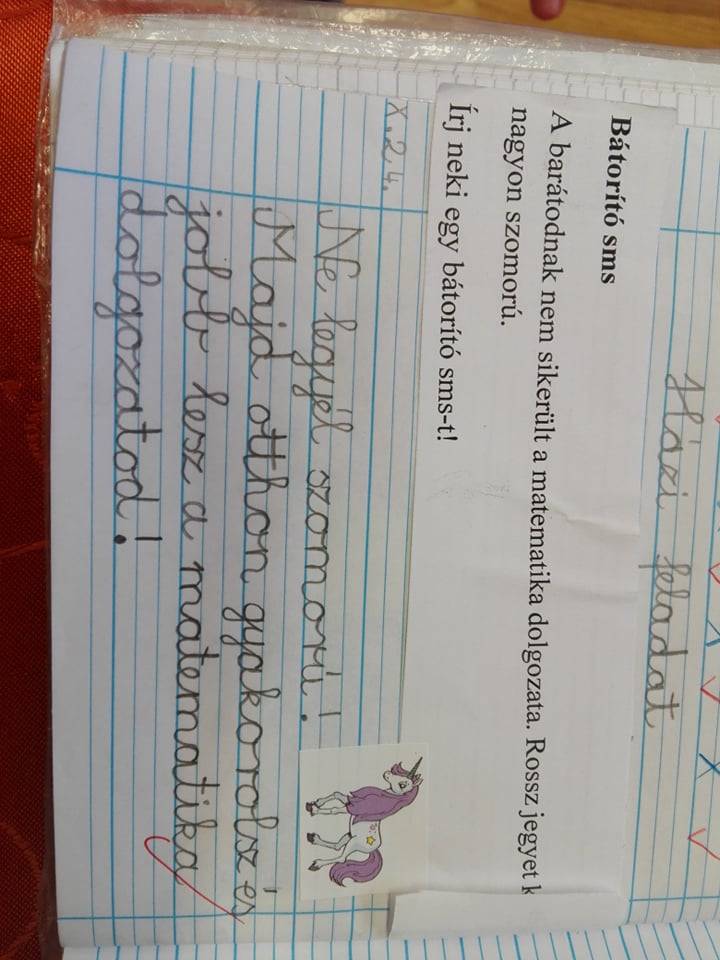 Házi feladat
Bátorító sms
A barátodnak nem sikerült a matematika dolgozata. Rossz jegyet k
nagyon szomorú.
Írj neki egy bátorító sms-t!
X.24.
Ne legyél szomorú!
Majd otthon gyakorolsz és
jobb lesz a matematika
dolgozatod!